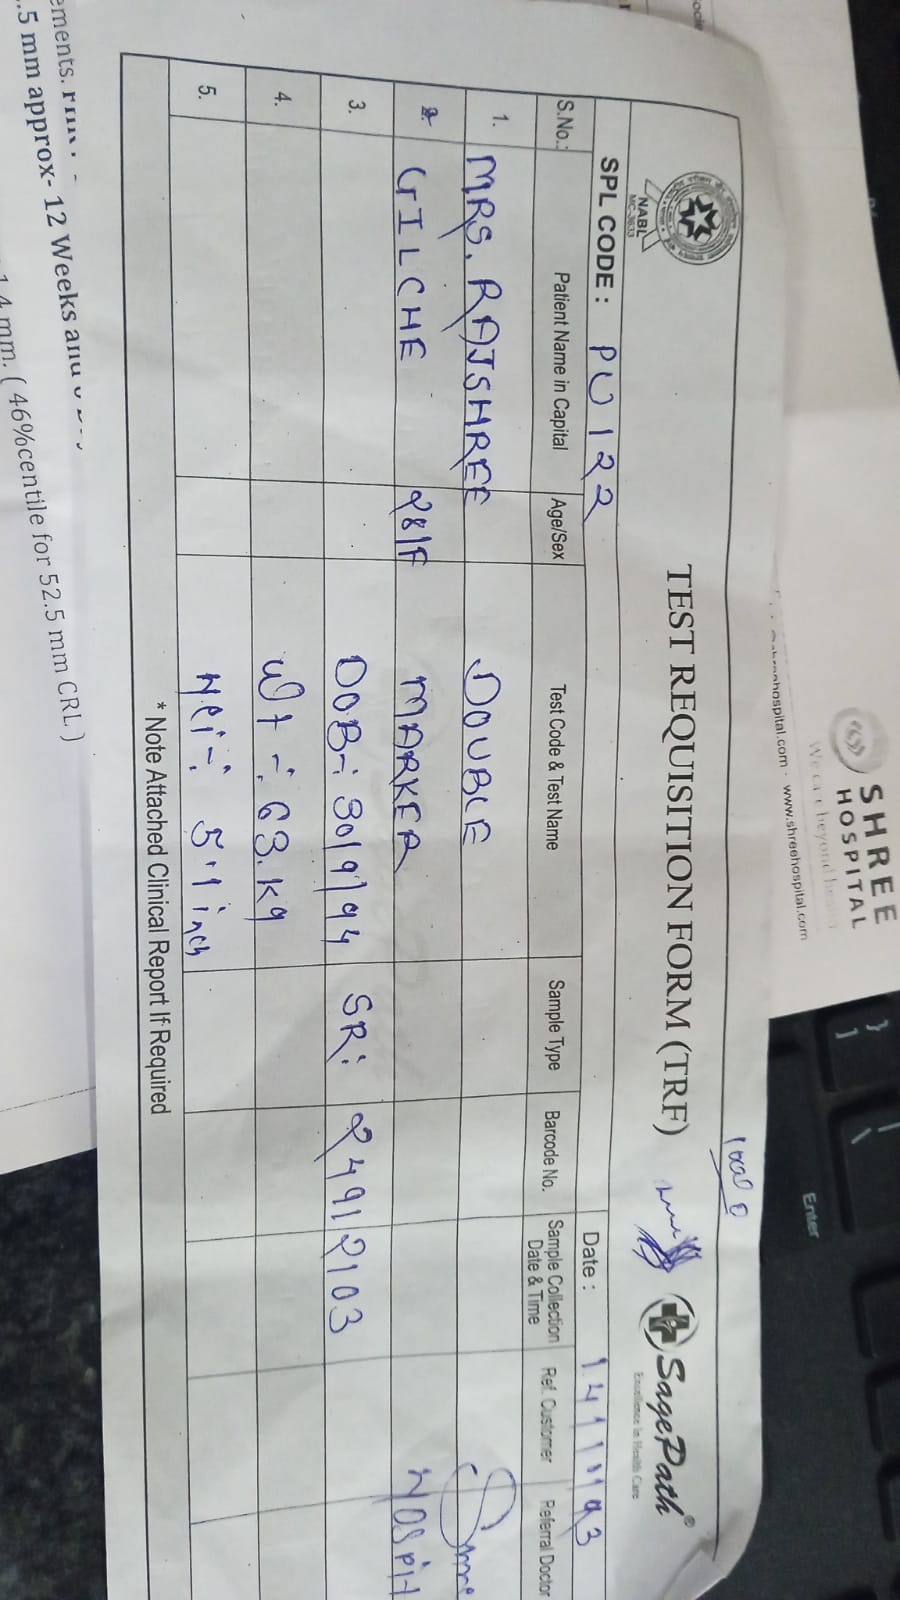 SHREE
HOSPITAL
We care beyond
www.shreehospital.com
Enter
TEST REQUISITION FORM (TRF)
NABL
MC-3633
SagePath®
Excellence in Health Care
SPL CODE : PU 122
Date :
S.No.: Patient Name in Capital Age/Sex Test Code & Test Name Sample Type Barcode No. Sample Collection Date & Time Ref. Customer Referral Doctor
1. MRS. RAJSHREE DOUBLE
2. GILCHE 28/F MARKER
3. DOB-: 30/9/94 SR: 24912103
4. Wt -: 63.kg
5. Hei-: 5.1 inch
* Note Attached Clinical Report If Required
ements.
.5 mm approx- 12 Weeks and
mm. ( 46%centile for 52.5 mm CRL.)